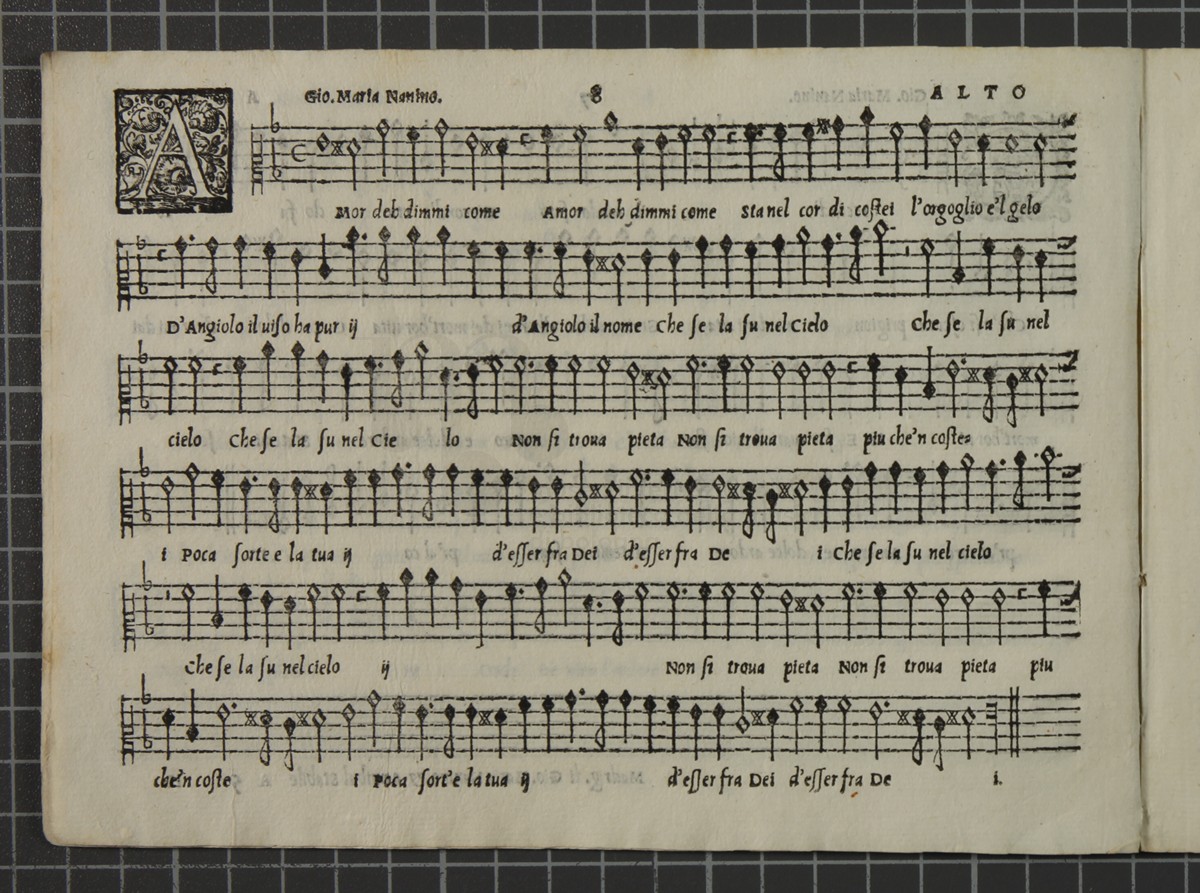 Gio. Maria Nanino. 8 ALTO
AMor deh dimmi come Amor deh dimmi come Sta nel cor di costei l'orgoglio e'l gelo
D'Angiolo il uiso ha pur ij d'Angiolo il nome Che se la su nel Cielo Che se la su nel
cielo Che se la su nel Cie lo Non si troua pieta Non si troua pieta piu che'n coste-
i Poca sorte e la tua ij d'esser fra Dei d'esser fra De i Che se la su nel cielo
Che se la su nel cielo ij Non si troua pieta Non si troua pieta piu
che'n coste i Poca sort'e la tua ij d'esser fra Dei d'esser fra De i.